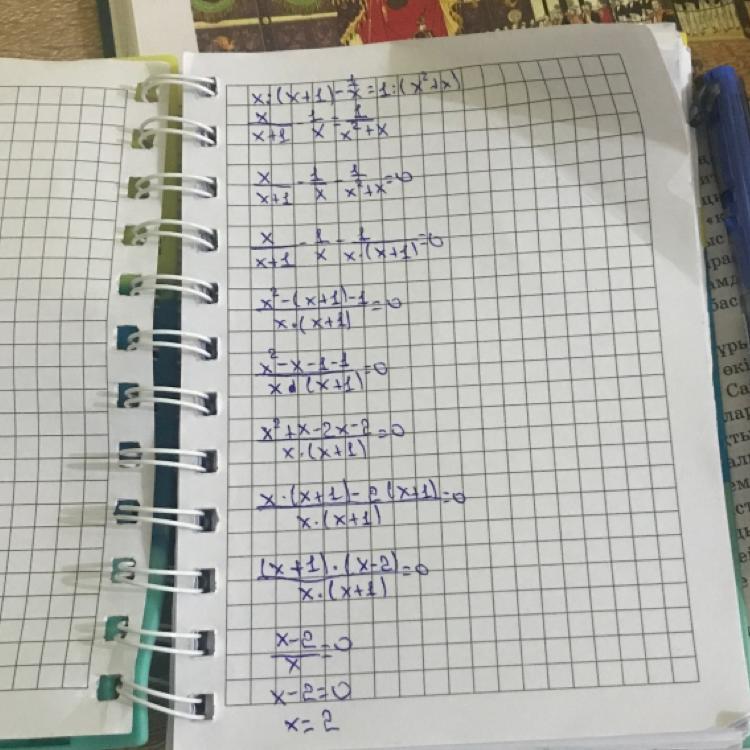 x:(x+1)-1/x=1:(x²+x)
x/(x+1) - 1/x = 1/(x²+x)
x/(x+1) - 1/x - 1/(x²+x)=0
x/(x+1) - 1/x - 1/(x·(x+1))=0
(x²-(x+1)-1)/(x·(x+1))=0
(x²-x-1-1)/(x·(x+1))=0
(x²+x-2x-2)/(x·(x+1))=0
(x·(x+1)-2(x+1))/(x·(x+1))=0
((x+1)·(x-2))/(x·(x+1))=0
(x-2)/x=0
x-2=0
x=2